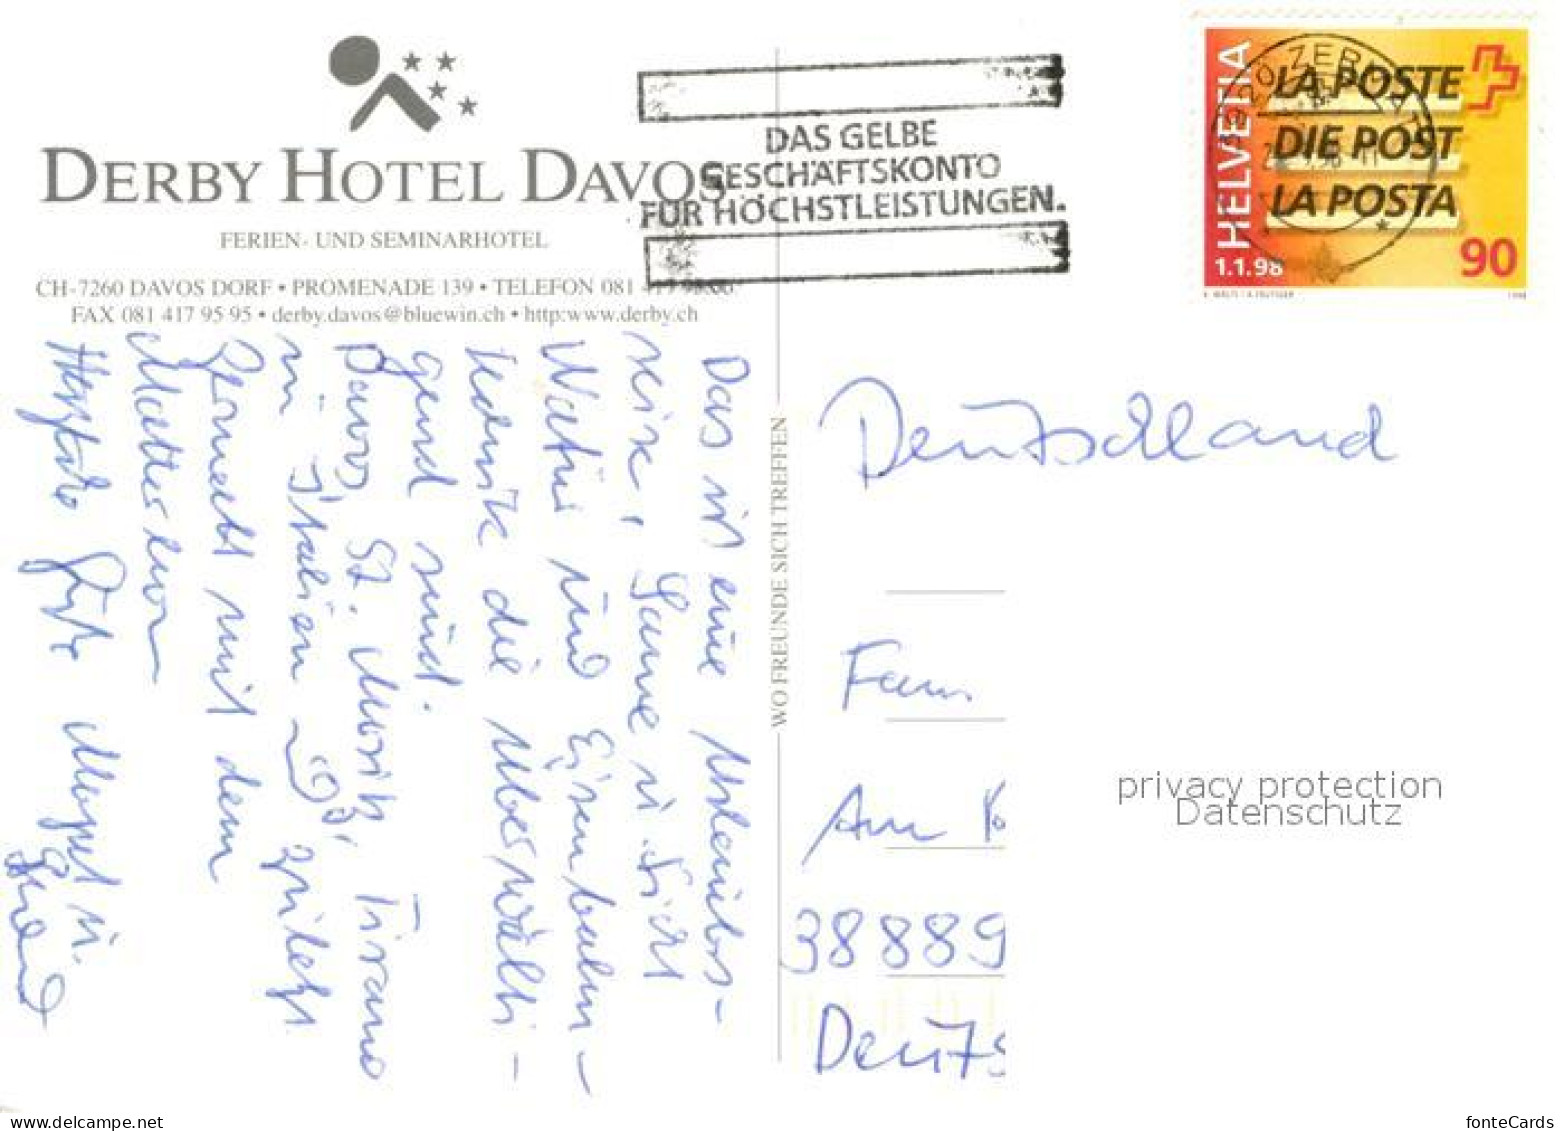 DERBY HOTEL DAVOS
FERIEN- UND SEMINARHOTEL
CH-7260 DAVOS DORF • PROMENADE 139 • TELEFON 081 417
FAX 081 417 95 95 • derby.davos@bluewin.ch • http:www.derby.ch
DAS GELBE
GESCHÄFTSKONTO
FÜR HÖCHSTLEISTUNGEN.
HELVETIA
1.1.98
LA POSTE
DIE POST
LA POSTA
90
ZERMATT
WO FREUNDE SICH TREFFEN
Das ist eine
reise, Sonne
Natur und Eisenbahn-
technik die überwälti-
gend sind.
Davos, St. Moritz, Tirano
in Italien zuletzt
Zermatt mit dem
Matterhorn
Herzliche Grüße
Deutschland
Fam.
Am
38889
Deuts
privacy protection
Datenschutz
www.delcampe.net
fonteCards